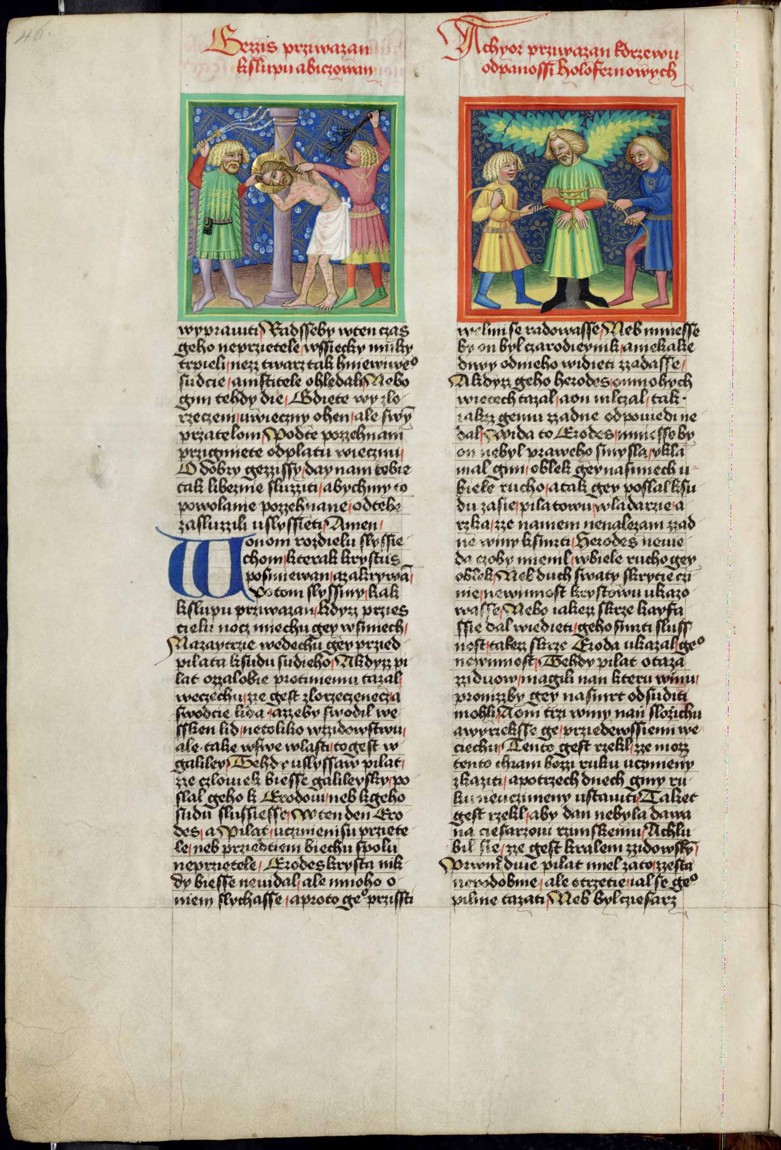 46.
Gezis przivazan
kslupu abiczowan
wyprawiti Radsseby wten czas
geho neprzietele wssiecky muky
trpieli nezz twarz tak hniewiweᵒ
sudcie amstitele ohledali Nebo
gim tehdy die Gdiete wy zlo
rzeczeni uwieczny ohen ale swyᷠ
przatelom Podte pozzehnani
przigmiete odplatu wiecznu
O dobry gezzissy day nam tobie
tak libeznie sluziti abychmy to
powolanie pozzehnane odtebe
zasluzzili uslyssieti Amen
Wonom rozdielu slyssie
chom kterak krystus
posmiewan azakrywaᷠ
Potom slyssimy kak
kslupu przivazan kdyzz przies
cielu nocz miechu gey wsmiech
Nazaytrzie wedechu gey przied
pilata ksudu sudieho Akdyzz pi
lat ozzalobie protiwemu tazal
wecechu zze gest zlorzeczenecz a
swodcie lida azzeby swodil we
ssken lid netoliko wzzidowstwu
ale take wswe wlasti togest w
galiley Tehdy uslyssaw pilat
zze czlowiek biesse galileysky po
slal geho k Erodowi neb kgeho
sudu slussiesse Wten den Ero
des a Pilat ucziniesu przete
le neb przedtiem biechu spolu
neprzietele Erodes krysta nik
dy biesse newidal ale mnoho o
niem slychasse aproto geᵒ przissti
Achyor przivazan kdrzewu
odpanossi Holofernowych
welmi se radowasse Neb mniesse
by on byl czarodieynik anekake
diwy odnieho widieti zzadasse
Akdyzz geho herodes omnohych
wiecech tazal aon mlczal tak
iakzz gemu zzadne odpowiedi ne
dal Wida to Erodes mniesse by
on nebyl praweho smysla ykla
mal gim oblek gey nasmiech u
biele rucho atak gey poslal ksu
du zasie pilatowu wladarzie a
rzka zze naniem nenalezam zzad
ne winy ksmrti Herodes newie
da czoby mienil wbiele rucho gey
oblek Neb duch swaty skrycie czi
nie newinnost krystowu ukazo
wasse Nebo iakozz skrze kayfa
ssie dal wiedieti geho smrti sluss
nost takezz skrze Eroda ukazal geᵒ
newinnost Tehdy pilat otaza
zziduow magili nan kteru winu
pronizzby gey nasmrt odsuditi
mohli Oni trzi winy nan slozichu
awyrzeksse ge przedewssiemi we
ciechu Tento gest rzekl zze mozz
tento chram bozzi ruku uczineny
zkaziti apotrzech dnech giny ru
ku neuczineny ustawiti Takez
gest rzekl aby dan nebyla dawa
na ciesarzowi rzimskemu Achlu
bil sie zze gest kralem zzidowskyᷠ
Prwni dwie pilat miel zato zzesta
nepodobnie ale otrzetie ial se geᵒ
pilnie tazati Neb byl cziesarz